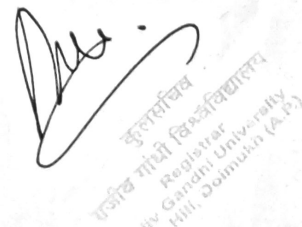 कुलसचिव
राजीव गांधी विश्वविद्यालय
Registrar
Gandhi University
Hill, Doimukh (A.P.)